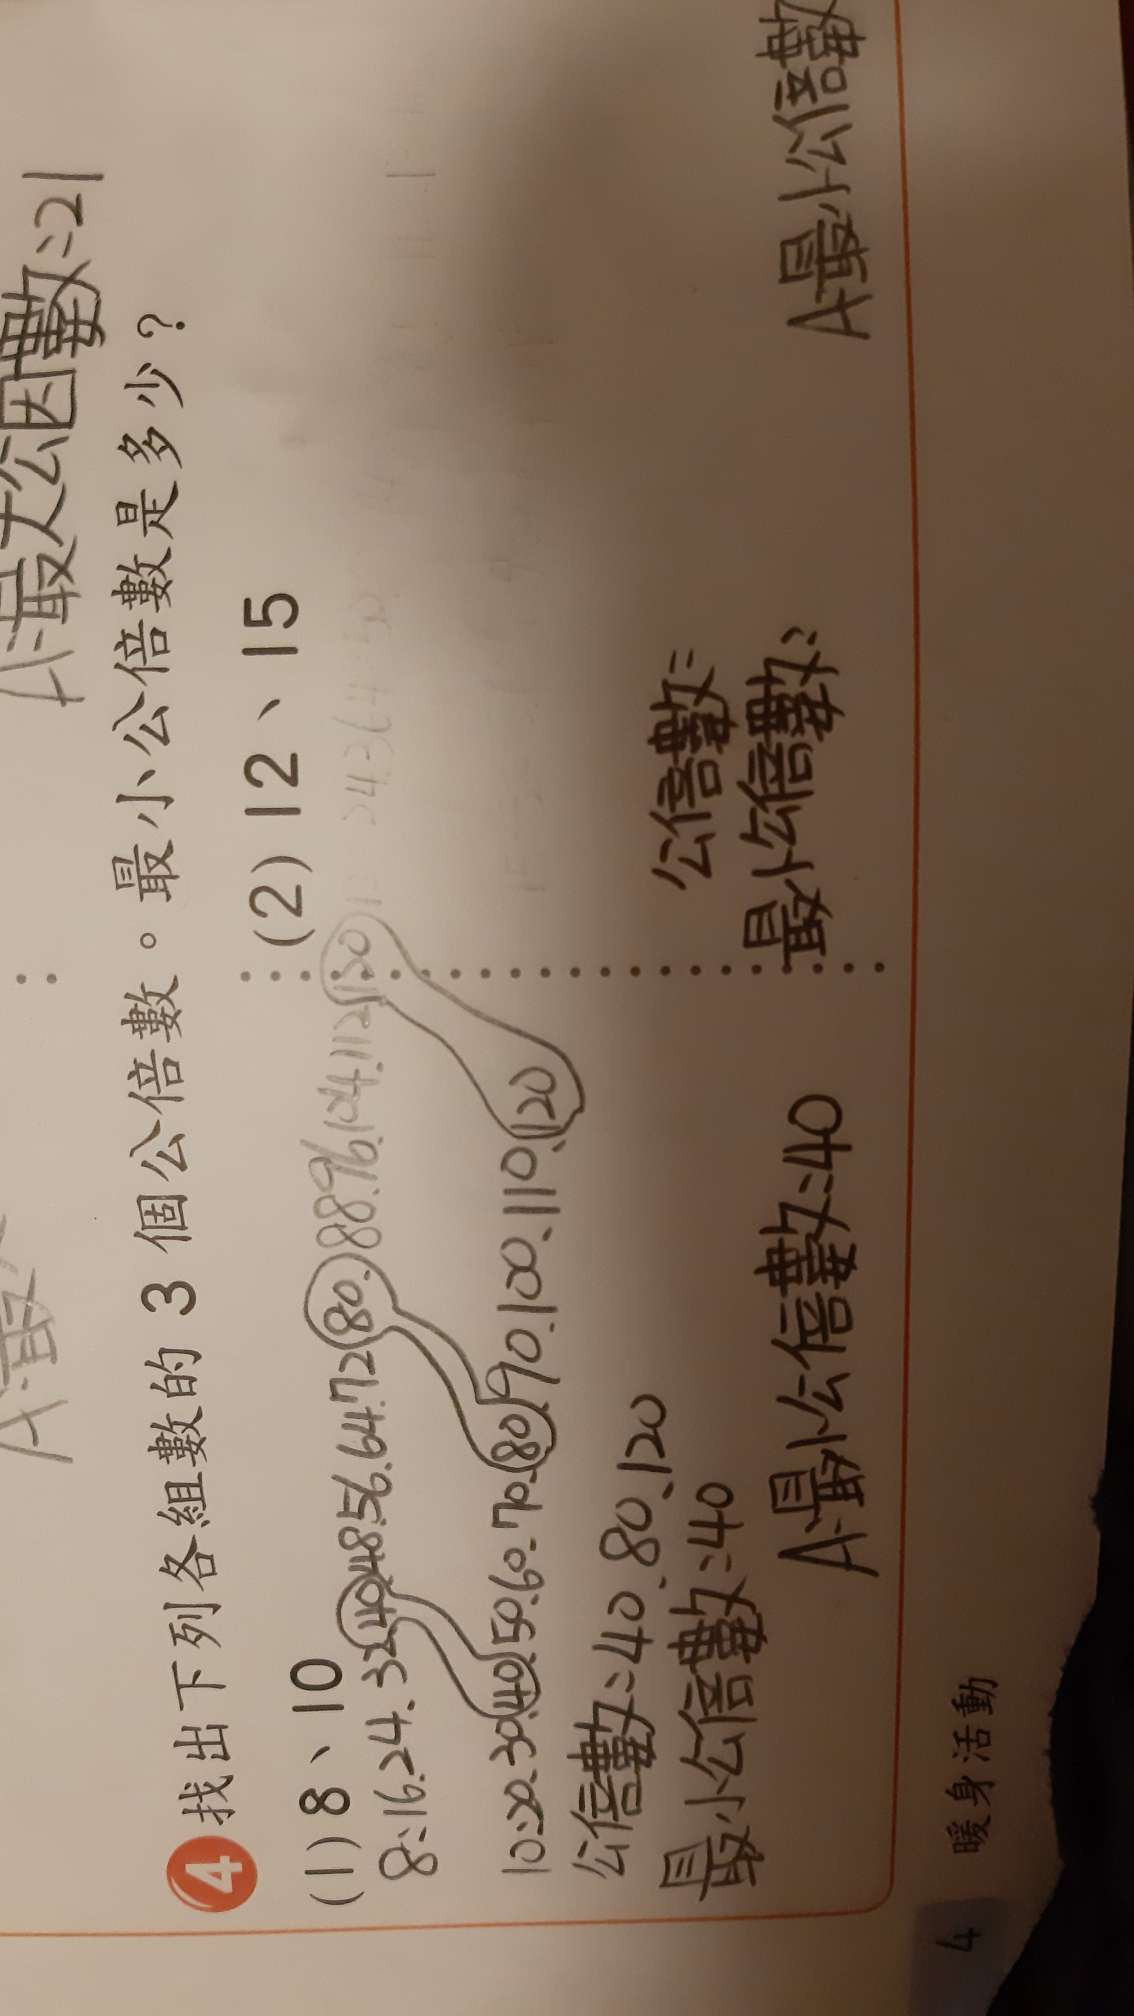 A:最大公因數=21
④ 找出下列各組數的 3 個公倍數。最小公倍數是多少？
(1) 8、10
8:16.24.32.40.48.56.64.72.80.88.96.104.112.120
10:20.30.40.50.60.70.80.90.100.110.120
公倍數=40.80.120
最小公倍數=40
A:最小公倍數=40
(2) 12、15
公倍數=
最小公倍數:
A:最小公倍數
4 暖身活動